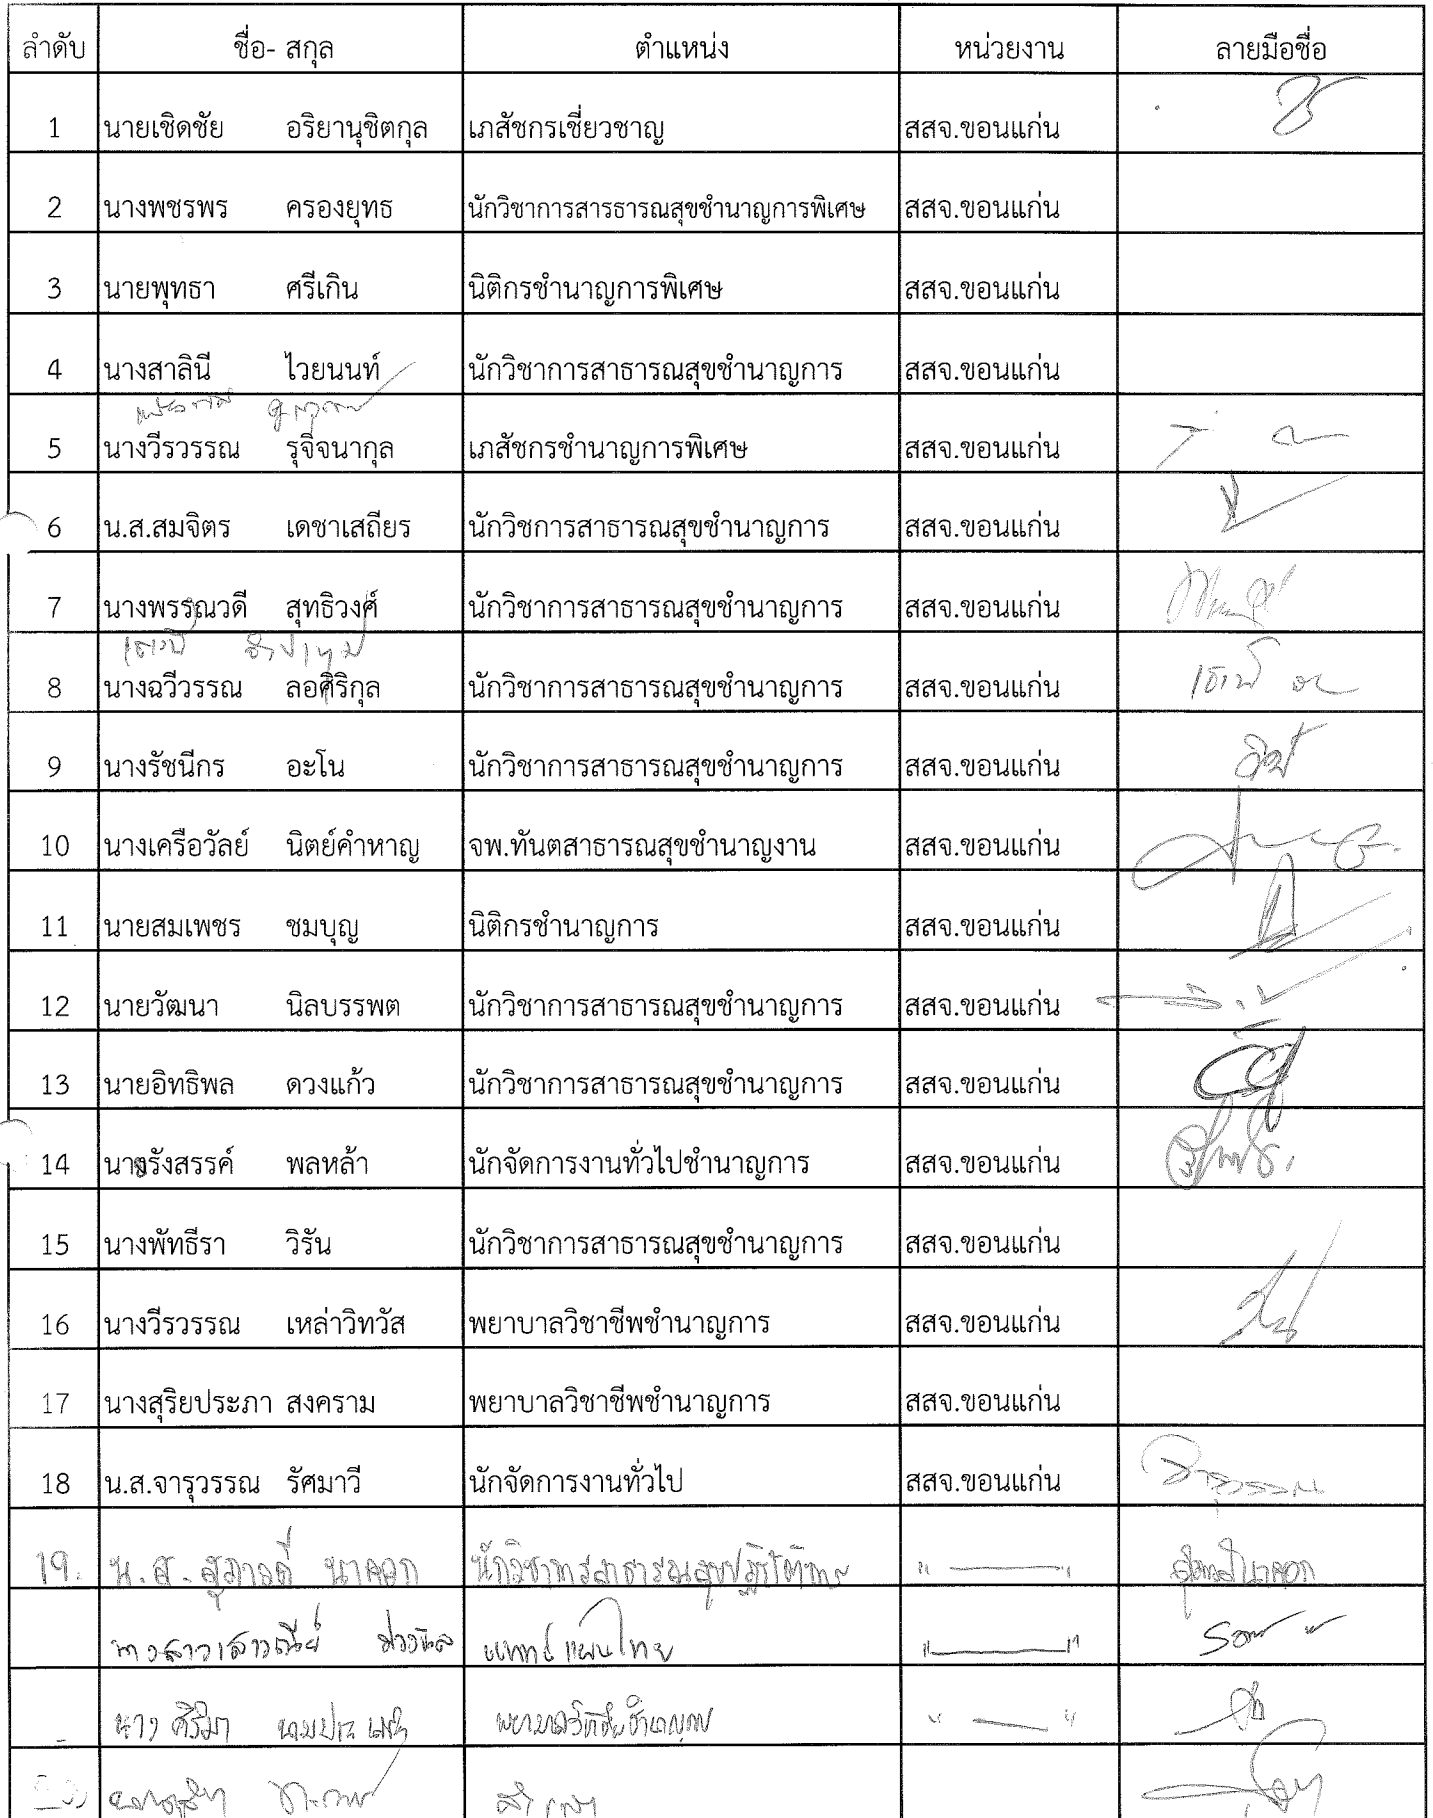 ลำดับ ชื่อ- สกุล ตำแหน่ง หน่วยงาน ลายมือชื่อ
1 นายเชิดชัย อริยานุชิตกุล เภสัชกรเชี่ยวชาญ สสจ.ขอนแก่น
2 นางพชรพร ครองยุทธ นักวิชาการสารธารณสุขชำนาญการพิเศษ สสจ.ขอนแก่น
3 นายพุทธา ศรีเกิน นิติกรชำนาญการพิเศษ สสจ.ขอนแก่น
4 นางสาลินี ไวยนนท์ นักวิชาการสาธารณสุขชำนาญการ สสจ.ขอนแก่น
5 นางวีรวรรณ รุจิจนากุล เภสัชกรชำนาญการพิเศษ สสจ.ขอนแก่น
6 น.ส.สมจิตร เดชาเสถียร นักวิชการสาธารณสุขชำนาญการ สสจ.ขอนแก่น
7 นางพรรณวดี สุทธิวงศ์ นักวิชาการสาธารณสุขชำนาญการ สสจ.ขอนแก่น
8 นางฉวีวรรณ ลอศิริกุล นักวิชาการสาธารณสุขชำนาญการ สสจ.ขอนแก่น
9 นางรัชนีกร อะโน นักวิชาการสาธารณสุขชำนาญการ สสจ.ขอนแก่น
10 นางเครือวัลย์ นิตย์คำหาญ จพ.ทันตสาธารณสุขชำนาญงาน สสจ.ขอนแก่น
11 นายสมเพชร ชมบุญ นิติกรชำนาญการ สสจ.ขอนแก่น
12 นายวัฒนา นิลบรรพต นักวิชาการสาธารณสุขชำนาญการ สสจ.ขอนแก่น
13 นายอิทธิพล ดวงแก้ว นักวิชาการสาธารณสุขชำนาญการ สสจ.ขอนแก่น
14 นางรังสรรค์ พลหล้า นักจัดการงานทั่วไปชำนาญการ สสจ.ขอนแก่น
15 นางพัทธีรา วิรัน นักวิชาการสาธารณสุขชำนาญการ สสจ.ขอนแก่น
16 นางวีรวรรณ เหล่าวิทวัส พยาบาลวิชาชีพชำนาญการ สสจ.ขอนแก่น
17 นางสุริยประภา สงคราม พยาบาลวิชาชีพชำนาญการ สสจ.ขอนแก่น
18 น.ส.จารุวรรณ รัศมาวี นักจัดการงานทั่วไป สสจ.ขอนแก่น จารุวรรณ
19. น.ส.สุภาวดี นาคอก นักวิชาการสาธารณสุขปฏิบัติการ " — "
นางสาวเสาวณีย์ แพทย์แผนไทย " — "
นาง พยาบาลวิชาชีพชำนาญการ " — "